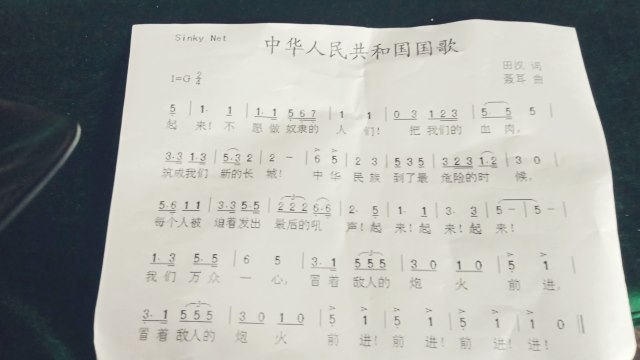 Sinky Net
中华人民共和国国歌
田汉 词
1=G 2/4
聂耳 曲
5 | 1. 1 | 1.1 567 | 1 1 | 03 123 | 5 5 |
起 来！不 愿做奴隶的 人 们！ 把 我们的 血 肉，
3.3 1.3 | 5.3 2 | 2 - | 6 5 | 2 3 | 535 | 323 12 | 3 0 |
筑成我们 新的长 城！ 中 华 民 族 到了最 危险的时 候，
5.6 11 | 3.3 5.5 | 222 6.6 | 2. 5 | 1. 1 | 3. 3 | 5 - | 5 - |
每个人被 迫着发出 最后的吼 声！起 来！起 来！起 来！
1. 3 5.5 | 6 5 | 3. 1 555 | 30 10 | 5 1 |
我 们 万众 一 心，冒着 敌人的 炮 火 前 进，
3. 1 555 | 30 10 | 5 1 | 5 1 | 5 1 | 1 0 ‖
冒着 敌人的 炮 火 前 进！前 进！前 进！进！